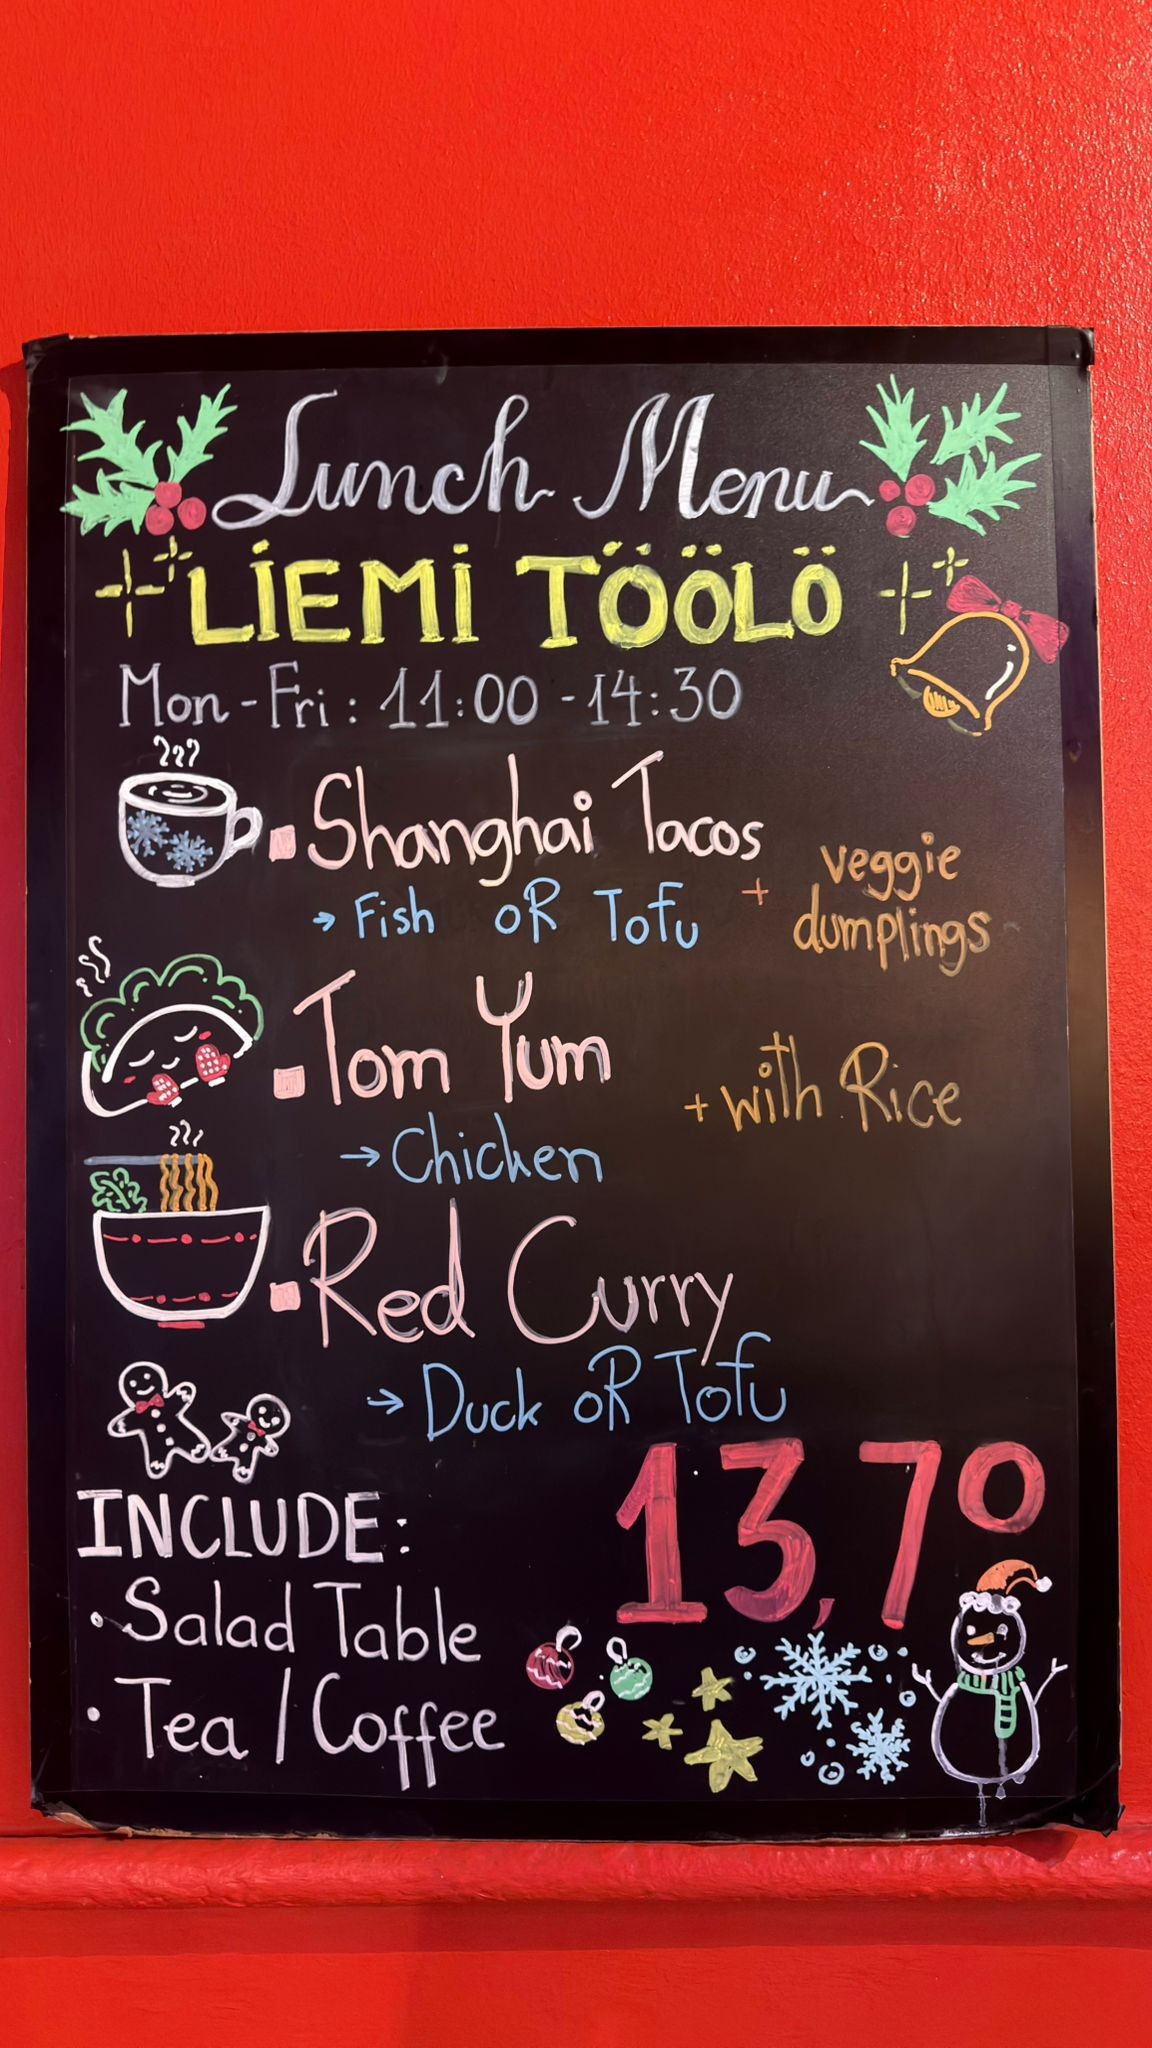 Lunch Menu
LIEMI TÖÖLÖ
Mon-Fri: 11:00 - 14:30
Shanghai Tacos
→ Fish OR Tofu + veggie dumplings
Tom Yum
→ Chicken + with Rice
Red Curry
→ Duck OR Tofu
13,70
INCLUDE:
• Salad Table
• Tea / Coffee